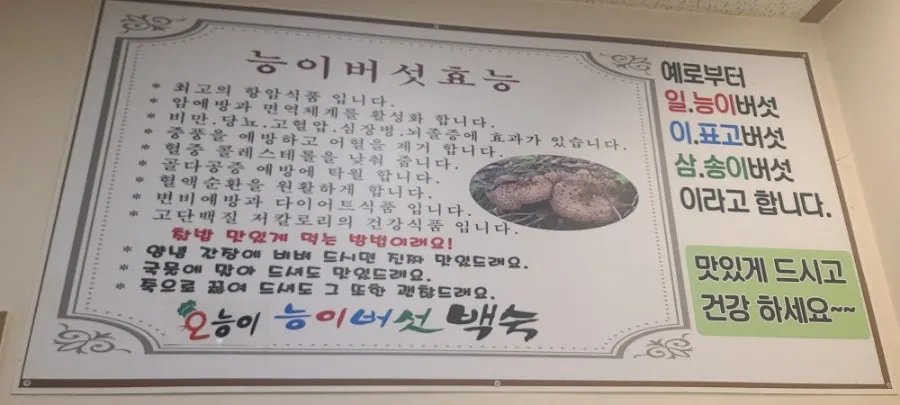 능이버섯효능
* 최고의 항암식품 입니다.
* 암예방과 면역체계를 활성화 합니다.
* 비만.당뇨.고혈압.심장병.뇌졸증에 효과가 있습니다.
* 중풍을 예방하고 어혈을 제거 합니다.
* 혈중 콜레스테롤을 낮춰 줍니다.
* 골다공증 예방에 탁월 합니다.
* 혈액순환을 원활하게 합니다.
* 변비예방과 다이어트식품 입니다.
* 고단백질 저칼로리의 건강식품 입니다.
찰밥 맛있게 먹는 방법이래요!
* 양념 간장에 비벼 드시면 진짜 맛있드래요.
* 국물에 말아 드셔도 맛있드래요.
* 죽으로 끓여 드셔도 그 또한 괜찮드래요.
오능이 능이버섯 백숙
예로부터
일.능이버섯
이.표고버섯
삼.송이버섯
이라고 합니다.
맛있게 드시고
건강 하세요~~